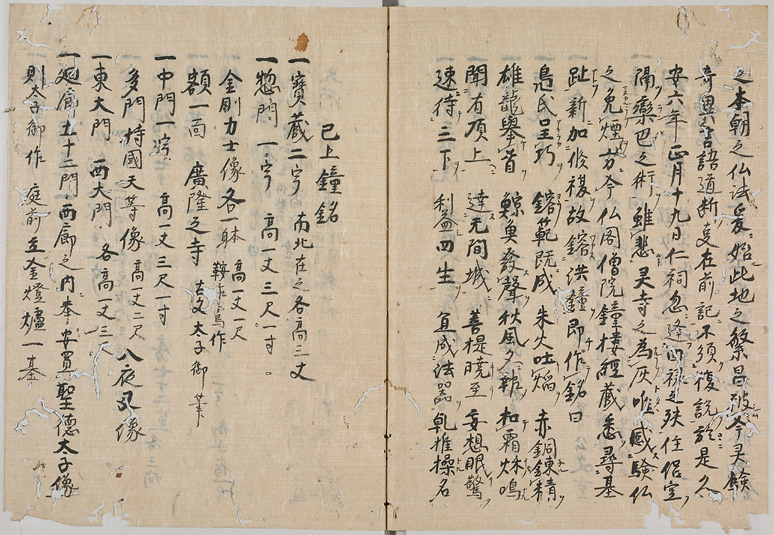 之本朝之仏法爰始此地之繁昌被今霊験
奇異言語道断事在前記不須復説於是久
安六年正月十九日仁祠忽逢回禄之殃住侶空
隔欒巴之術雖悲霊寺之為灰唯感験仏
之免煙方今仏閣僧院鐘楼経蔵悉尋基
趾新加修複故鎔洪鐘即作銘曰
鳧氏呈巧 鎔範既成 朱火吐焔 赤銅錬精
雄龍挙首 鯨魚發聲 秋風夕 和霜秋鳴
聞有頂上 達无間城 菩提暁至 妄想眠驚
速侍三下 利益四生 宜成法器 乳椎操名
已上鐘銘
一寳蔵二宇 南北在之各高三丈
一惣門一宇 高一丈三尺一寸。
金剛力士像各一躰 高一丈一尺 鞍作鳥作
額一面 廣隆之寺 古文太子御筆
一中門一宇 高一丈三尺一寸
多門持國天等像 高丈二尺 八夜叉像
一東大門 西大門 各高一丈三尺
一廻廊七十二門 西廊之内奉安置聖徳太子像
則太子御作 庭前立金燈爐一基